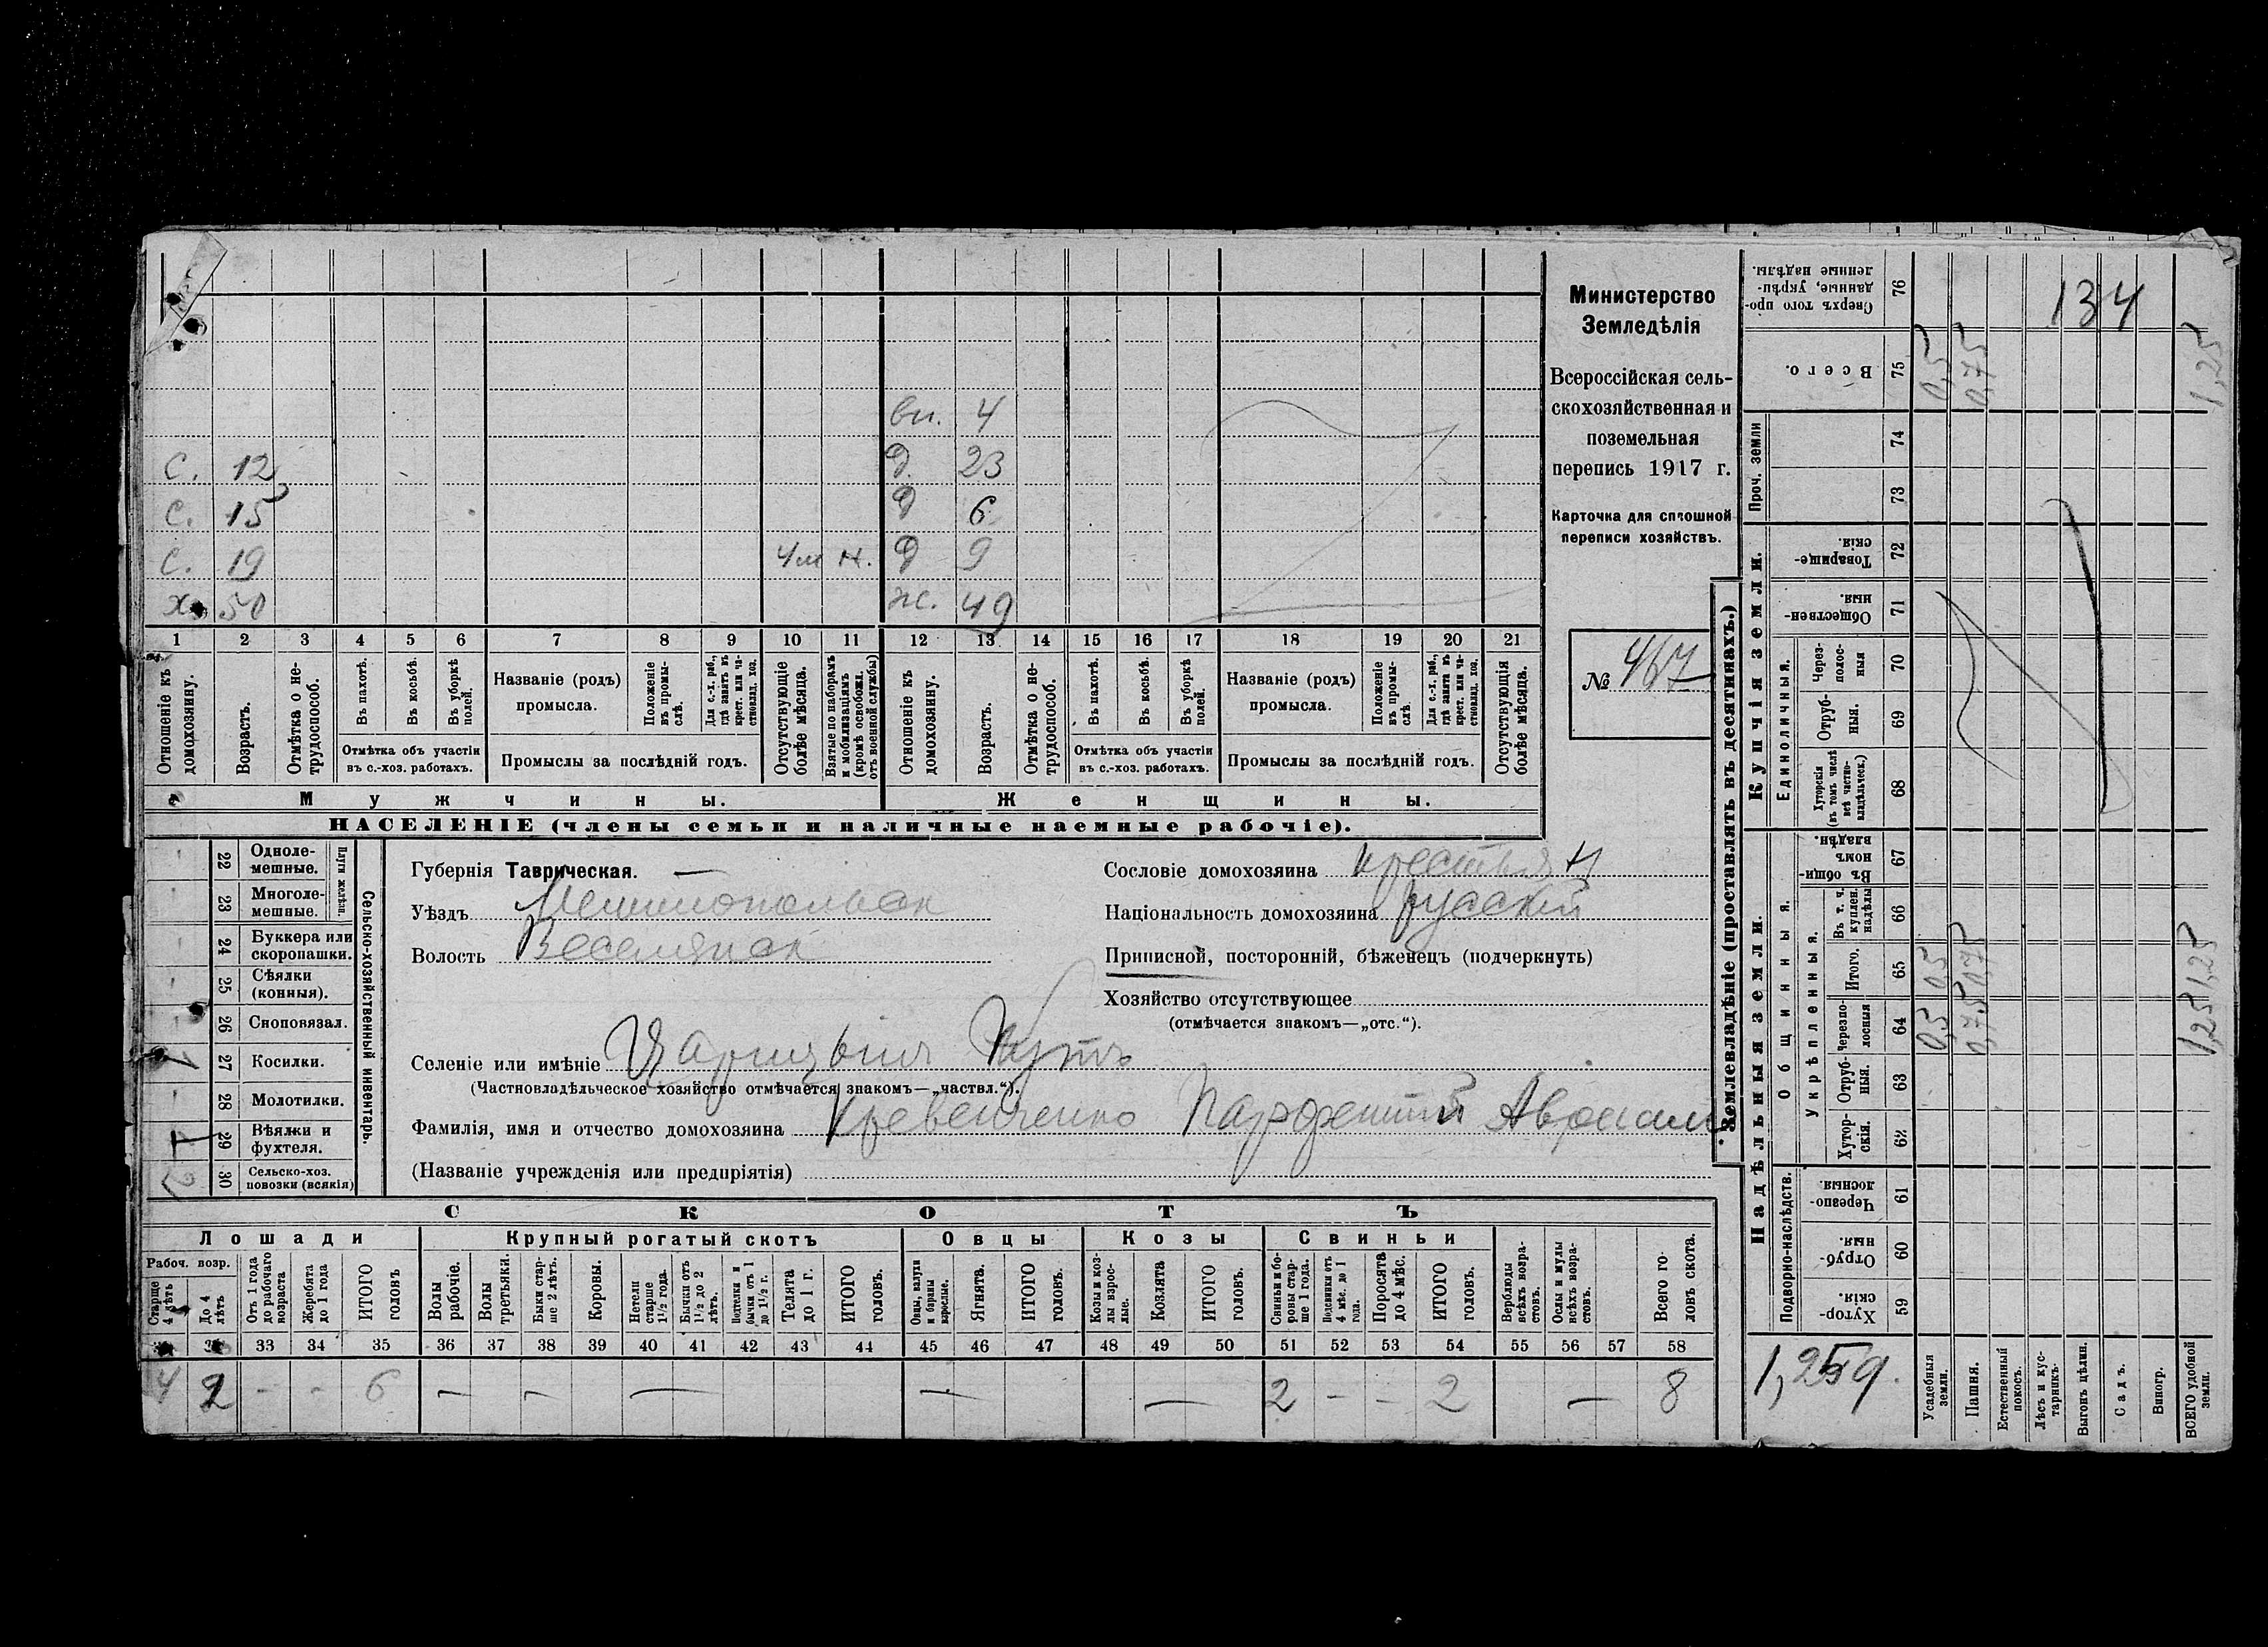 вн. 4
с. 12 д. 23
с. 15 д 6
с. 19 4 м н. д 9
х. 50 ж. 49
1 2 3 4 5 6 7 8 9 10 11 12 13 14 15 16 17 18 19 20 21
Отношеніе къ домохозяину.
Возрастъ.
Отмѣтка о нетрудоспособ.
Въ пахотѣ.
Въ косьбѣ.
Въ уборкѣ полей.
Отмѣтка объ участіи
въ с.-хоз. работахъ.
Названіе (родъ)
промысла.
Положеніе въ промыслѣ.
Для с.-х. раб., гдѣ занятъ въ крест. или частновлад. хоз.
Промыслы за послѣдній годъ.
Отсутствующіе болѣе мѣсяца.
Взятые по наборамъ и мобилизаціямъ (кромѣ освобожд. отъ военной службы)
Отношеніе къ домохозяину.
Возрастъ.
Отмѣтка о нетрудоспособ.
Въ пахотѣ.
Въ косьбѣ.
Въ уборкѣ полей.
Отмѣтка объ участіи
въ с.-хоз. работахъ.
Названіе (родъ)
промысла.
Положеніе въ промыслѣ.
Для с.-х. раб., гдѣ занята въ крест. или частновлад. хоз.
Промыслы за послѣдній годъ.
Отсутствующія болѣе мѣсяца.
Мужчины. Женщины.
НАСЕЛЕНІЕ (члены семьи и наличные наемные рабочіе).
Министерство
Земледѣлія
Всероссійская сель-
скохозяйственная и
поземельная
перепись 1917 г.
Карточка для сплошной
переписи хозяйствъ.
№ 467
22 Одноле-
мешные.
23 Многоле-
мешные.
Плуги желѣзн.
24 Буккера или
скоропашки.
25 Сѣялки
(конныя).
26 Сноповязал.
27 Косилки. 1
28 Молотилки.
29 Вѣялки и
фухтеля. 1
30 Сельско-хоз.
повозки (всякія) 2
Сельско-хозяйственный инвентарь.
Губернія Таврическая.
Уѣздъ Мелитопольск
Волость Веселянск
Сословіе домохозяина крестьян
Національность домохозяина русскій
Приписной, посторонній, бѣженецъ (подчеркнуть)
Хозяйство отсутствующее
(отмѣчается знакомъ—„отс.“).
Селеніе или имѣніе Царицынъ Кутъ
(Частновладѣльческое хозяйство отмѣчается знакомъ—„частвл.“).
Фамилія, имя и отчество домохозяина Кревенченко Парфентій Аврам
(Названіе учрежденія или предпріятія)
СКОТЪ
Лошади Крупный рогатый скотъ Овцы Козы Свиньи
Рабоч. возр.
Старше 4 лѣтъ
До 4 лѣтъ
Отъ 1 года до рабочаго возраста
Жеребята до 1 года
ИТОГО головъ
Волы рабочіе.
Волы третьяки.
Быки старше 2 лѣтъ.
Коровы.
Нетели старше 1½ года.
Бычки отъ 1½ до 2 лѣтъ.
Подтелки и бычки отъ 1 до 1½ г.
Телята до 1 г.
ИТОГО головъ.
Овцы, валухи и бараны взрослые.
Ягнята.
ИТОГО головъ.
Козы и козлы взрослые.
Козлята
ИТОГО головъ.
Свиньи и боровы старше 1 года.
Подсвинки отъ 4 мѣс. до 1 года.
Поросята до 4 мѣс.
ИТОГО головъ.
Верблюды всѣхъ возрастовъ.
Ослы и мулы всѣхъ возрастовъ.
Всего головъ скота.
33 34 35 36 37 38 39 40 41 42 43 44 45 46 47 48 49 50 51 52 53 54 55 56 57 58
4 2 - - 6 — — — — — 2 - - 2 — 8
Землевладѣніе (проставлять въ десятинахъ.)
Купчія земли.
Надѣльныя земли.
Сверхъ того проданные, укрѣпленные надѣлы. 76
134
Всего. 75 0,5 0,75 1,25
Проч. земли 74
73
Товарищескія. 72
Общественныя. 71
Единоличныя.
Черезполосныя 70
Отрубныя. 69
Хуторскія (въ томъ числѣ всѣ частновладѣльческ.) 68
Общинныя.
Въ общинномъ владѣн. 67
Укрѣпленныя.
Въ т. ч. куплен. надѣлы 66
Итого. 65 0,5 0,75 1,25
Черезполосныя 64 0,5 0,75 1,25
Отрубныя. 63
Хуторскія. 62
Подворно-наслѣдств.
Черезполосныя. 61
Отрубныя. 60
Хуторскія. 59
1,25 д.
Усадебныя земли.
Пашня.
Естественный покосъ.
Лѣсъ и кустарникъ.
Выгонъ цѣлин.
Садъ.
Виногр.
ВСЕГО удобной земли.